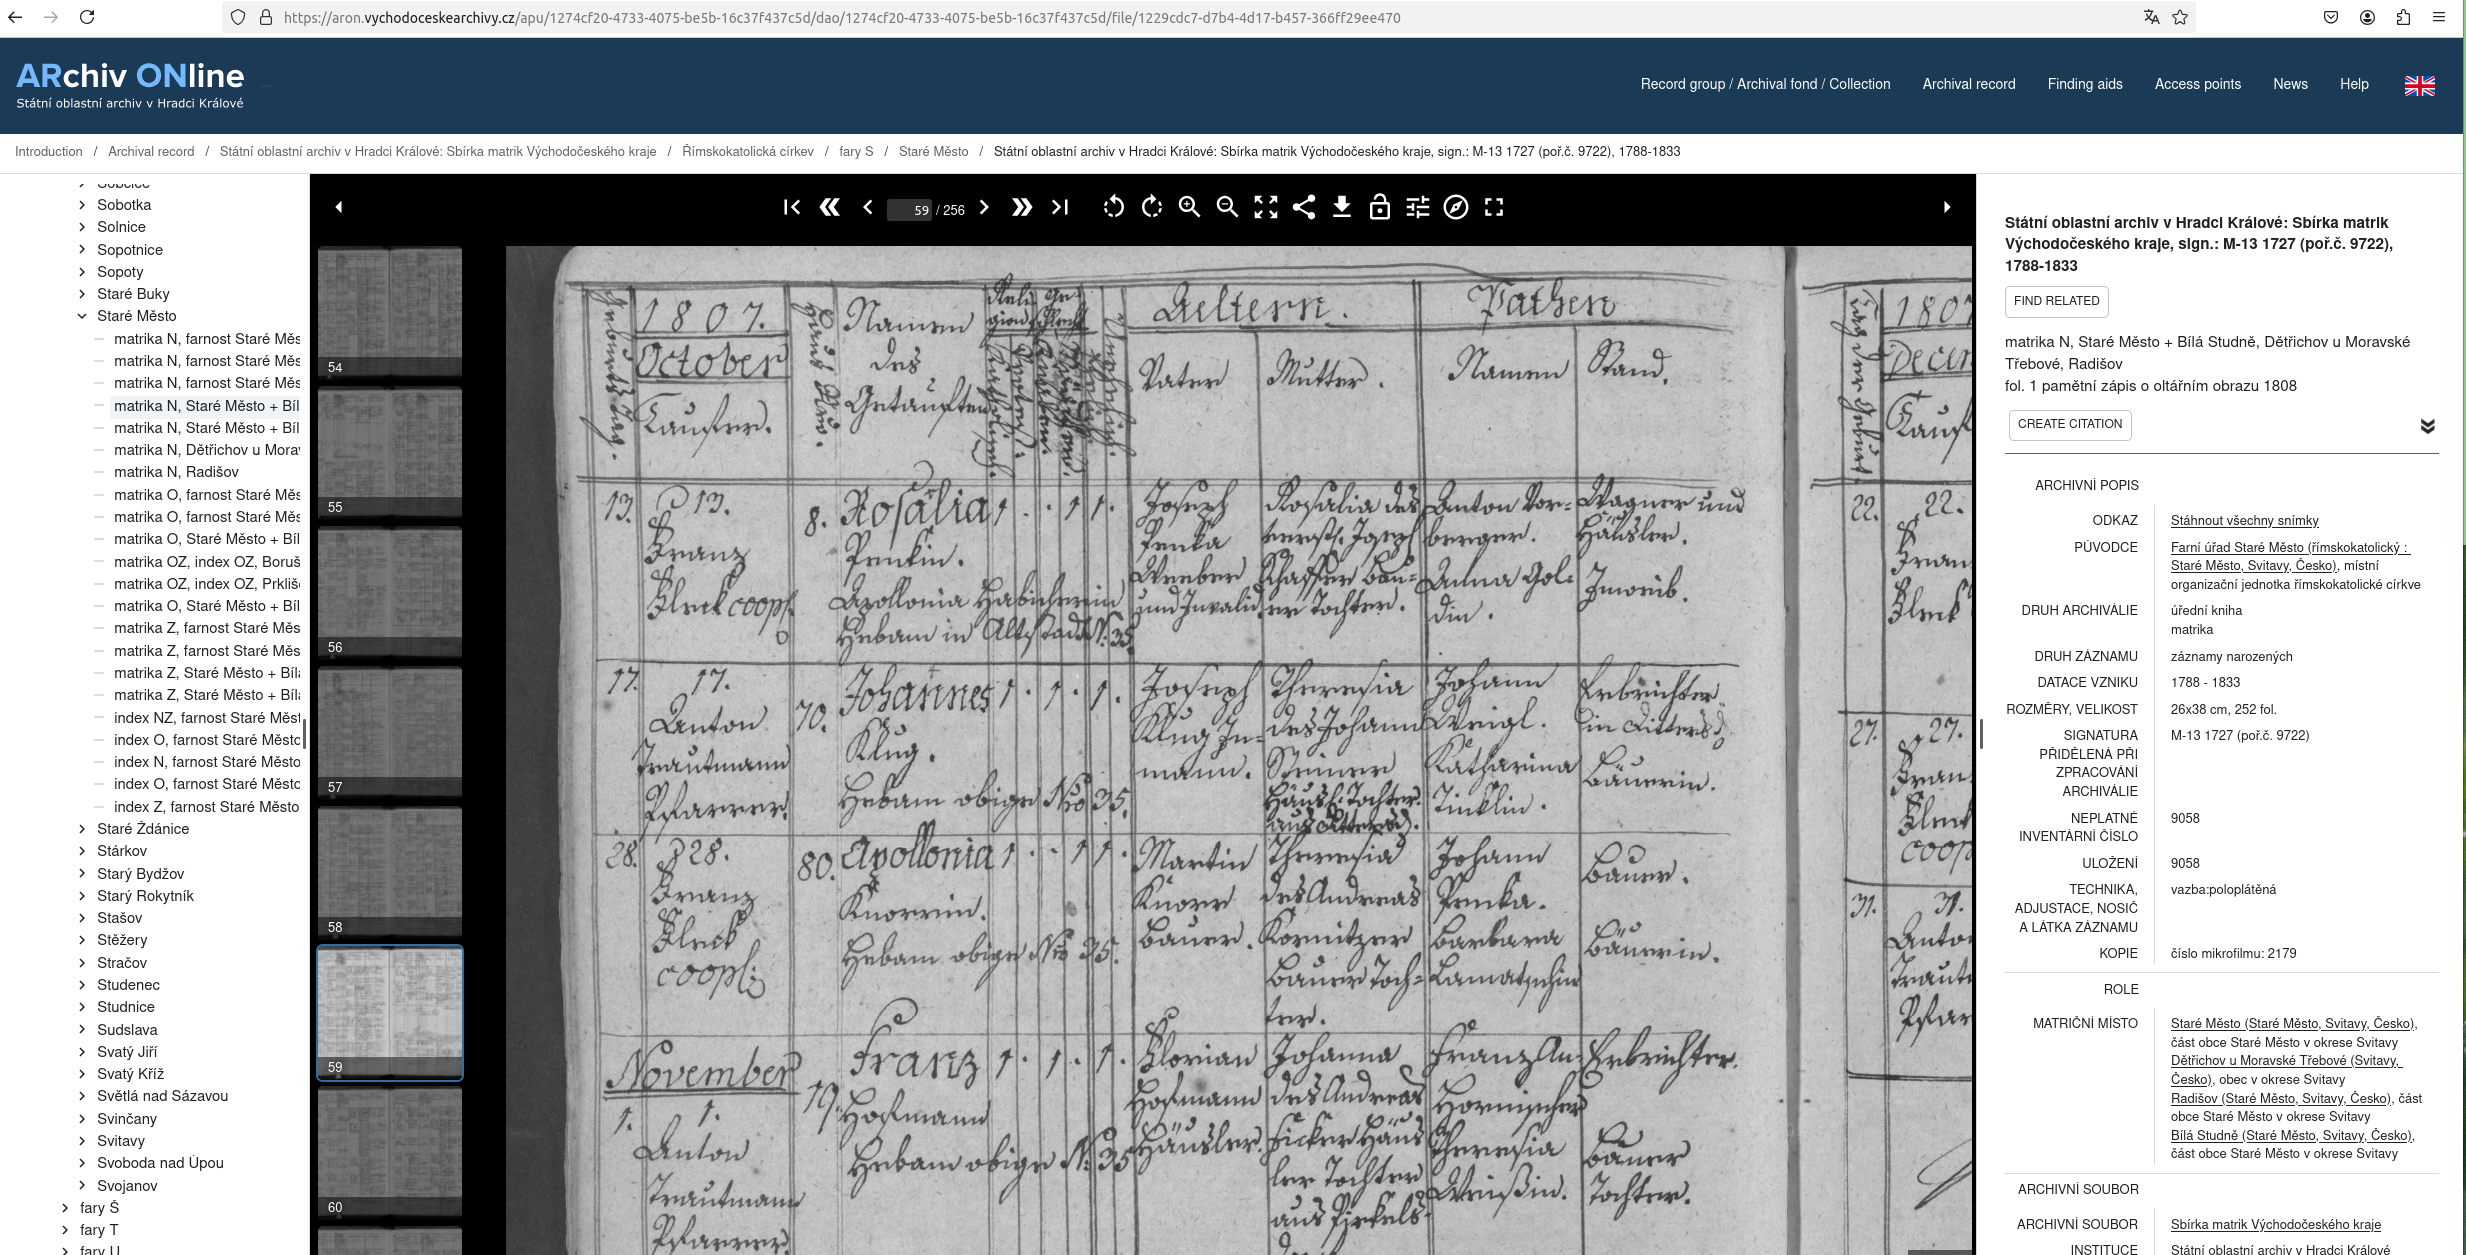 https://aron.vychodoceskearchivy.cz/apu/1274cf20-4733-4075-be5b-16c37f437c5d/dao/1274cf20-4733-4075-be5b-16c37f437c5d/file/1229cdc7-d7b4-4d17-b457-366ff29ee470
ARchiv ONline
Státní oblastní archiv v Hradci Králové
Record group / Archival fond / Collection
Archival record
Finding aids
Access points
News
Help
Introduction / Archival record / Státní oblastní archiv v Hradci Králové: Sbírka matrik Východočeského kraje / Římskokatolická církev / fary S / Staré Město / Státní oblastní archiv v Hradci Králové: Sbírka matrik Východočeského kraje, sign.: M-13 1727 (poř.č. 9722), 1788-1833
Sobčice
Sobotka
Solnice
Sopotnice
Sopoty
Staré Buky
Staré Město
matrika N, farnost Staré Měs
matrika N, farnost Staré Měs
matrika N, farnost Staré Měs
matrika N, Staré Město + Bíl
matrika N, Staré Město + Bíl
matrika N, Dětřichov u Mora
matrika N, Radišov
matrika O, farnost Staré Měs
matrika O, farnost Staré Měs
matrika O, Staré Město + Bíl
matrika OZ, index OZ, Boruš
matrika OZ, index OZ, Prkliš
matrika O, Staré Město + Bíl
matrika Z, farnost Staré Měs
matrika Z, farnost Staré Měs
matrika Z, Staré Město + Bíl
matrika Z, Staré Město + Bíl
index NZ, farnost Staré Měst
index O, farnost Staré Město
index N, farnost Staré Město
index O, farnost Staré Město
index Z, farnost Staré Město
Staré Ždánice
Stárkov
Starý Bydžov
Starý Rokytník
Stašov
Stěžery
Stračov
Studenec
Studnice
Sudslava
Svatý Jiří
Svatý Kříž
Světlá nad Sázavou
Svinčany
Svitavy
Svoboda nad Úpou
Svojanov
fary Š
fary T
fary U
54
55
56
57
58
59
60
59 / 256
1807. Namen Aeltern. Pathen
October des Vater Mutter. Namen Stand.
Taufter. Getauften
13. 13. 8. Rosalia 1 . . 1 1. Joseph Rosalia des Anton Vor= Wagner und
Franz Penkin. Penka Joseph berger. Häusler.
Fleck coop. Apollonia Habicherin Weeber Schaffer Bau= Anna Gol=
Hebam in Altstadt N. 35. und Invalid. er Tochter. din. Inweib.
17. 17. 70. Johannes 1 . 1 . 1. Joseph Theresia Johann Erbrichter
Anton Klug. Klug In= des Johann Weigl. in Dittersd.
Trautmann mann. Steiner Katharina Bäuerin.
Pfarrer. Hebam obige Nro 35. Häusl. Tochter Tinklin.
aus Dittersd.
28. 28. 80. Apollonia 1 . . 1 1. Martin Theresia Johann Bauer.
Franz Knorrin. Knorr des Andreas Penka.
Fleck Hebam obige Nro 35. Bauer. Kornitzer Barbara Bäuerin.
coop. Bauer Toch= Lamatschin
ter.
November 19. Franz 1 . 1 . 1. Florian Johanna Franz An= Erbrichter.
1. 1. Hofmann Hofmann des Andreas Hornischer
Anton Hebam obige N. 35 Häusler. Ficker Häus Theresia Bauer
Trautmann ler Tochter Weissin. Tochter.
Pfarrer aus Pirkels=
1807
Decem
22. 22.
Fran
Fleck
27. 27.
Fran
Fleck
coop
31. 31.
Anto
Traut
Pfar
Státní oblastní archiv v Hradci Králové: Sbírka matrik
Východočeského kraje, sign.: M-13 1727 (poř.č. 9722),
1788-1833
FIND RELATED
matrika N, Staré Město + Bílá Studně, Dětřichov u Moravské
Třebové, Radišov
fol. 1 pamětní zápis o oltářním obrazu 1808
CREATE CITATION
ARCHIVNÍ POPIS
ODKAZ Stáhnout všechny snímky
PŮVODCE Farní úřad Staré Město (římskokatolický :
Staré Město, Svitavy, Česko), místní
organizační jednotka římskokatolické církve
DRUH ARCHIVÁLIE úřední kniha
matrika
DRUH ZÁZNAMU záznamy narozených
DATACE VZNIKU 1788 - 1833
ROZMĚRY, VELIKOST 26x38 cm, 252 fol.
SIGNATURA M-13 1727 (poř.č. 9722)
PŘIDĚLENÁ PŘI
ZPRACOVÁNÍ
ARCHIVÁLIE
NEPLATNÉ 9058
INVENTÁRNÍ ČÍSLO
ULOŽENÍ 9058
TECHNIKA, vazba:poloplátěná
ADJUSTACE, NOSIČ
A LÁTKA ZÁZNAMU
KOPIE číslo mikrofilmu: 2179
ROLE
MATRIČNÍ MÍSTO Staré Město (Staré Město, Svitavy, Česko),
část obce Staré Město v okrese Svitavy
Dětřichov u Moravské Třebové (Svitavy,
Česko), obec v okrese Svitavy
Radišov (Staré Město, Svitavy, Česko), část
obce Staré Město v okrese Svitavy
Bílá Studně (Staré Město, Svitavy, Česko),
část obce Staré Město v okrese Svitavy
ARCHIVNÍ SOUBOR
ARCHIVNÍ SOUBOR Sbírka matrik Východočeského kraje
INSTITUCE Státní oblastní archiv v Hradci Králové